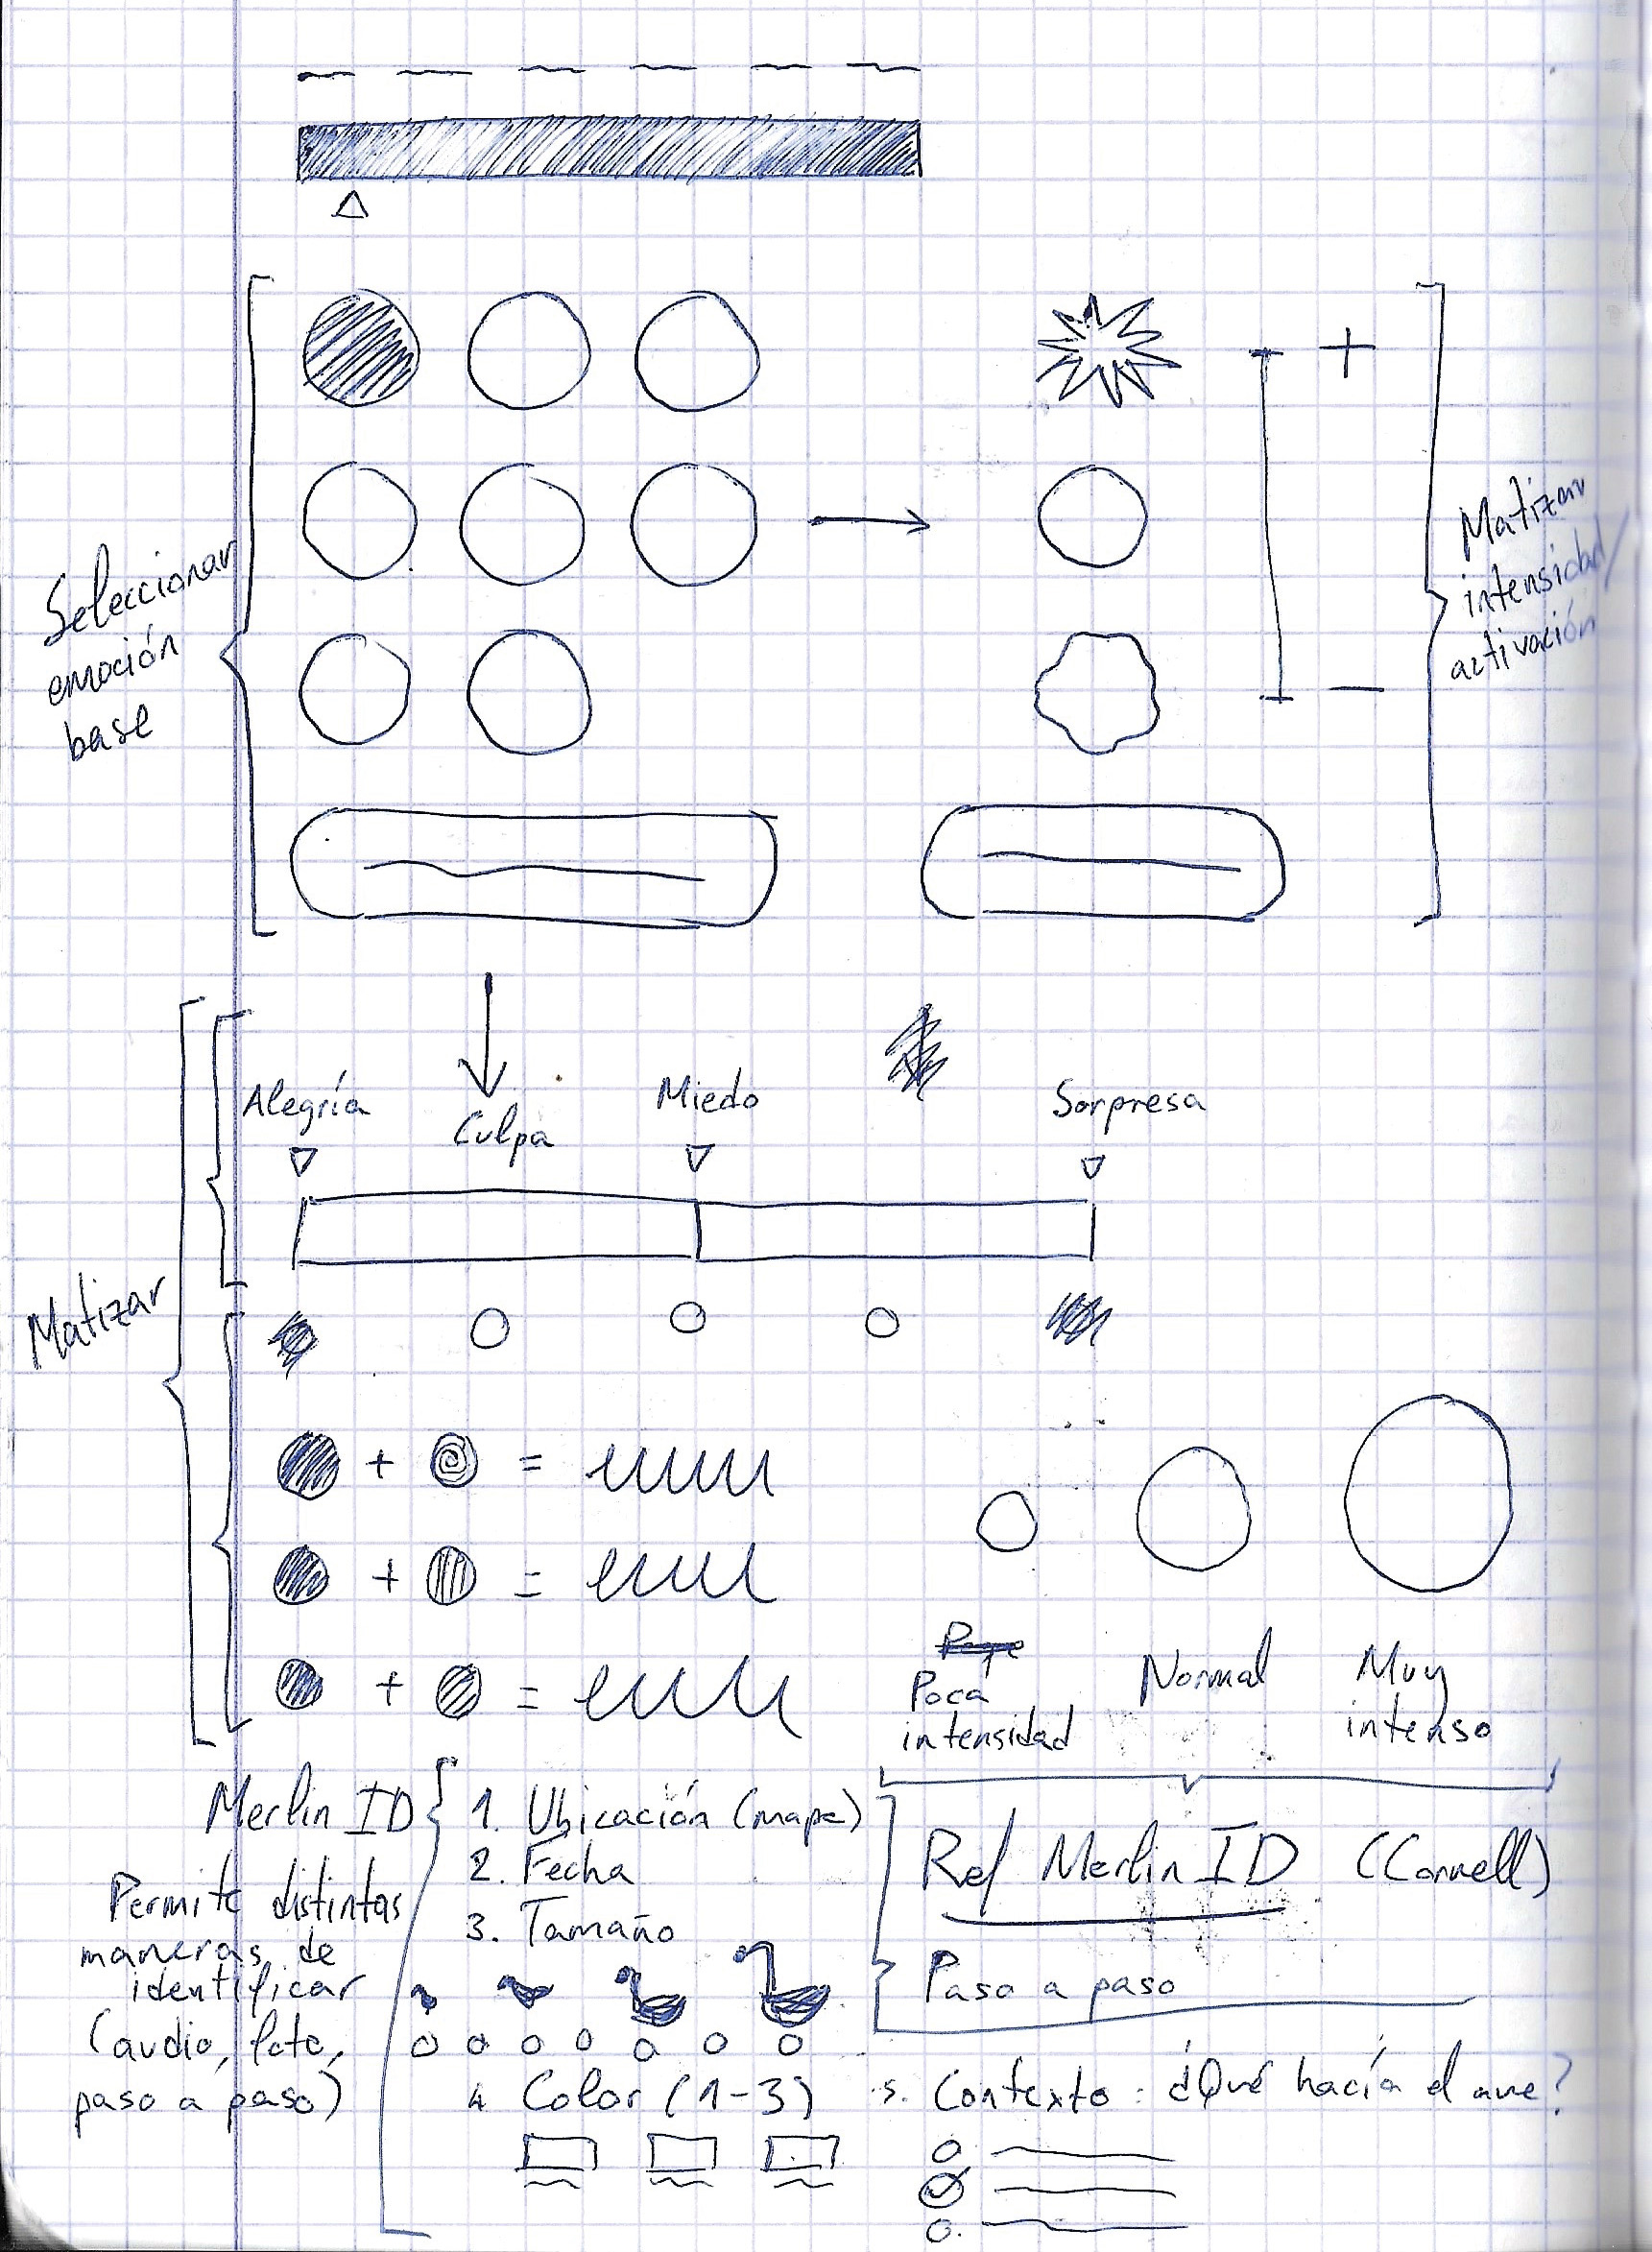 Seleccionar
emoción
base
+
-
Matizar
intensidad/
activación
Matizar
Alegría
Culpa
Miedo
Sorpresa
+ =
+ =
+ =
Poca
intensidad
Normal
Muy
intenso
Merlin ID
Permite distintas
maneras de
identificar
(audio, foto,
paso a paso)
1. Ubicación (mapa)
2. Fecha
3. Tamaño
4 Color (1-3)
Ref Merlin ID (Cornell)
Paso a paso
5. Contexto: ¿Qué hacía el ave?